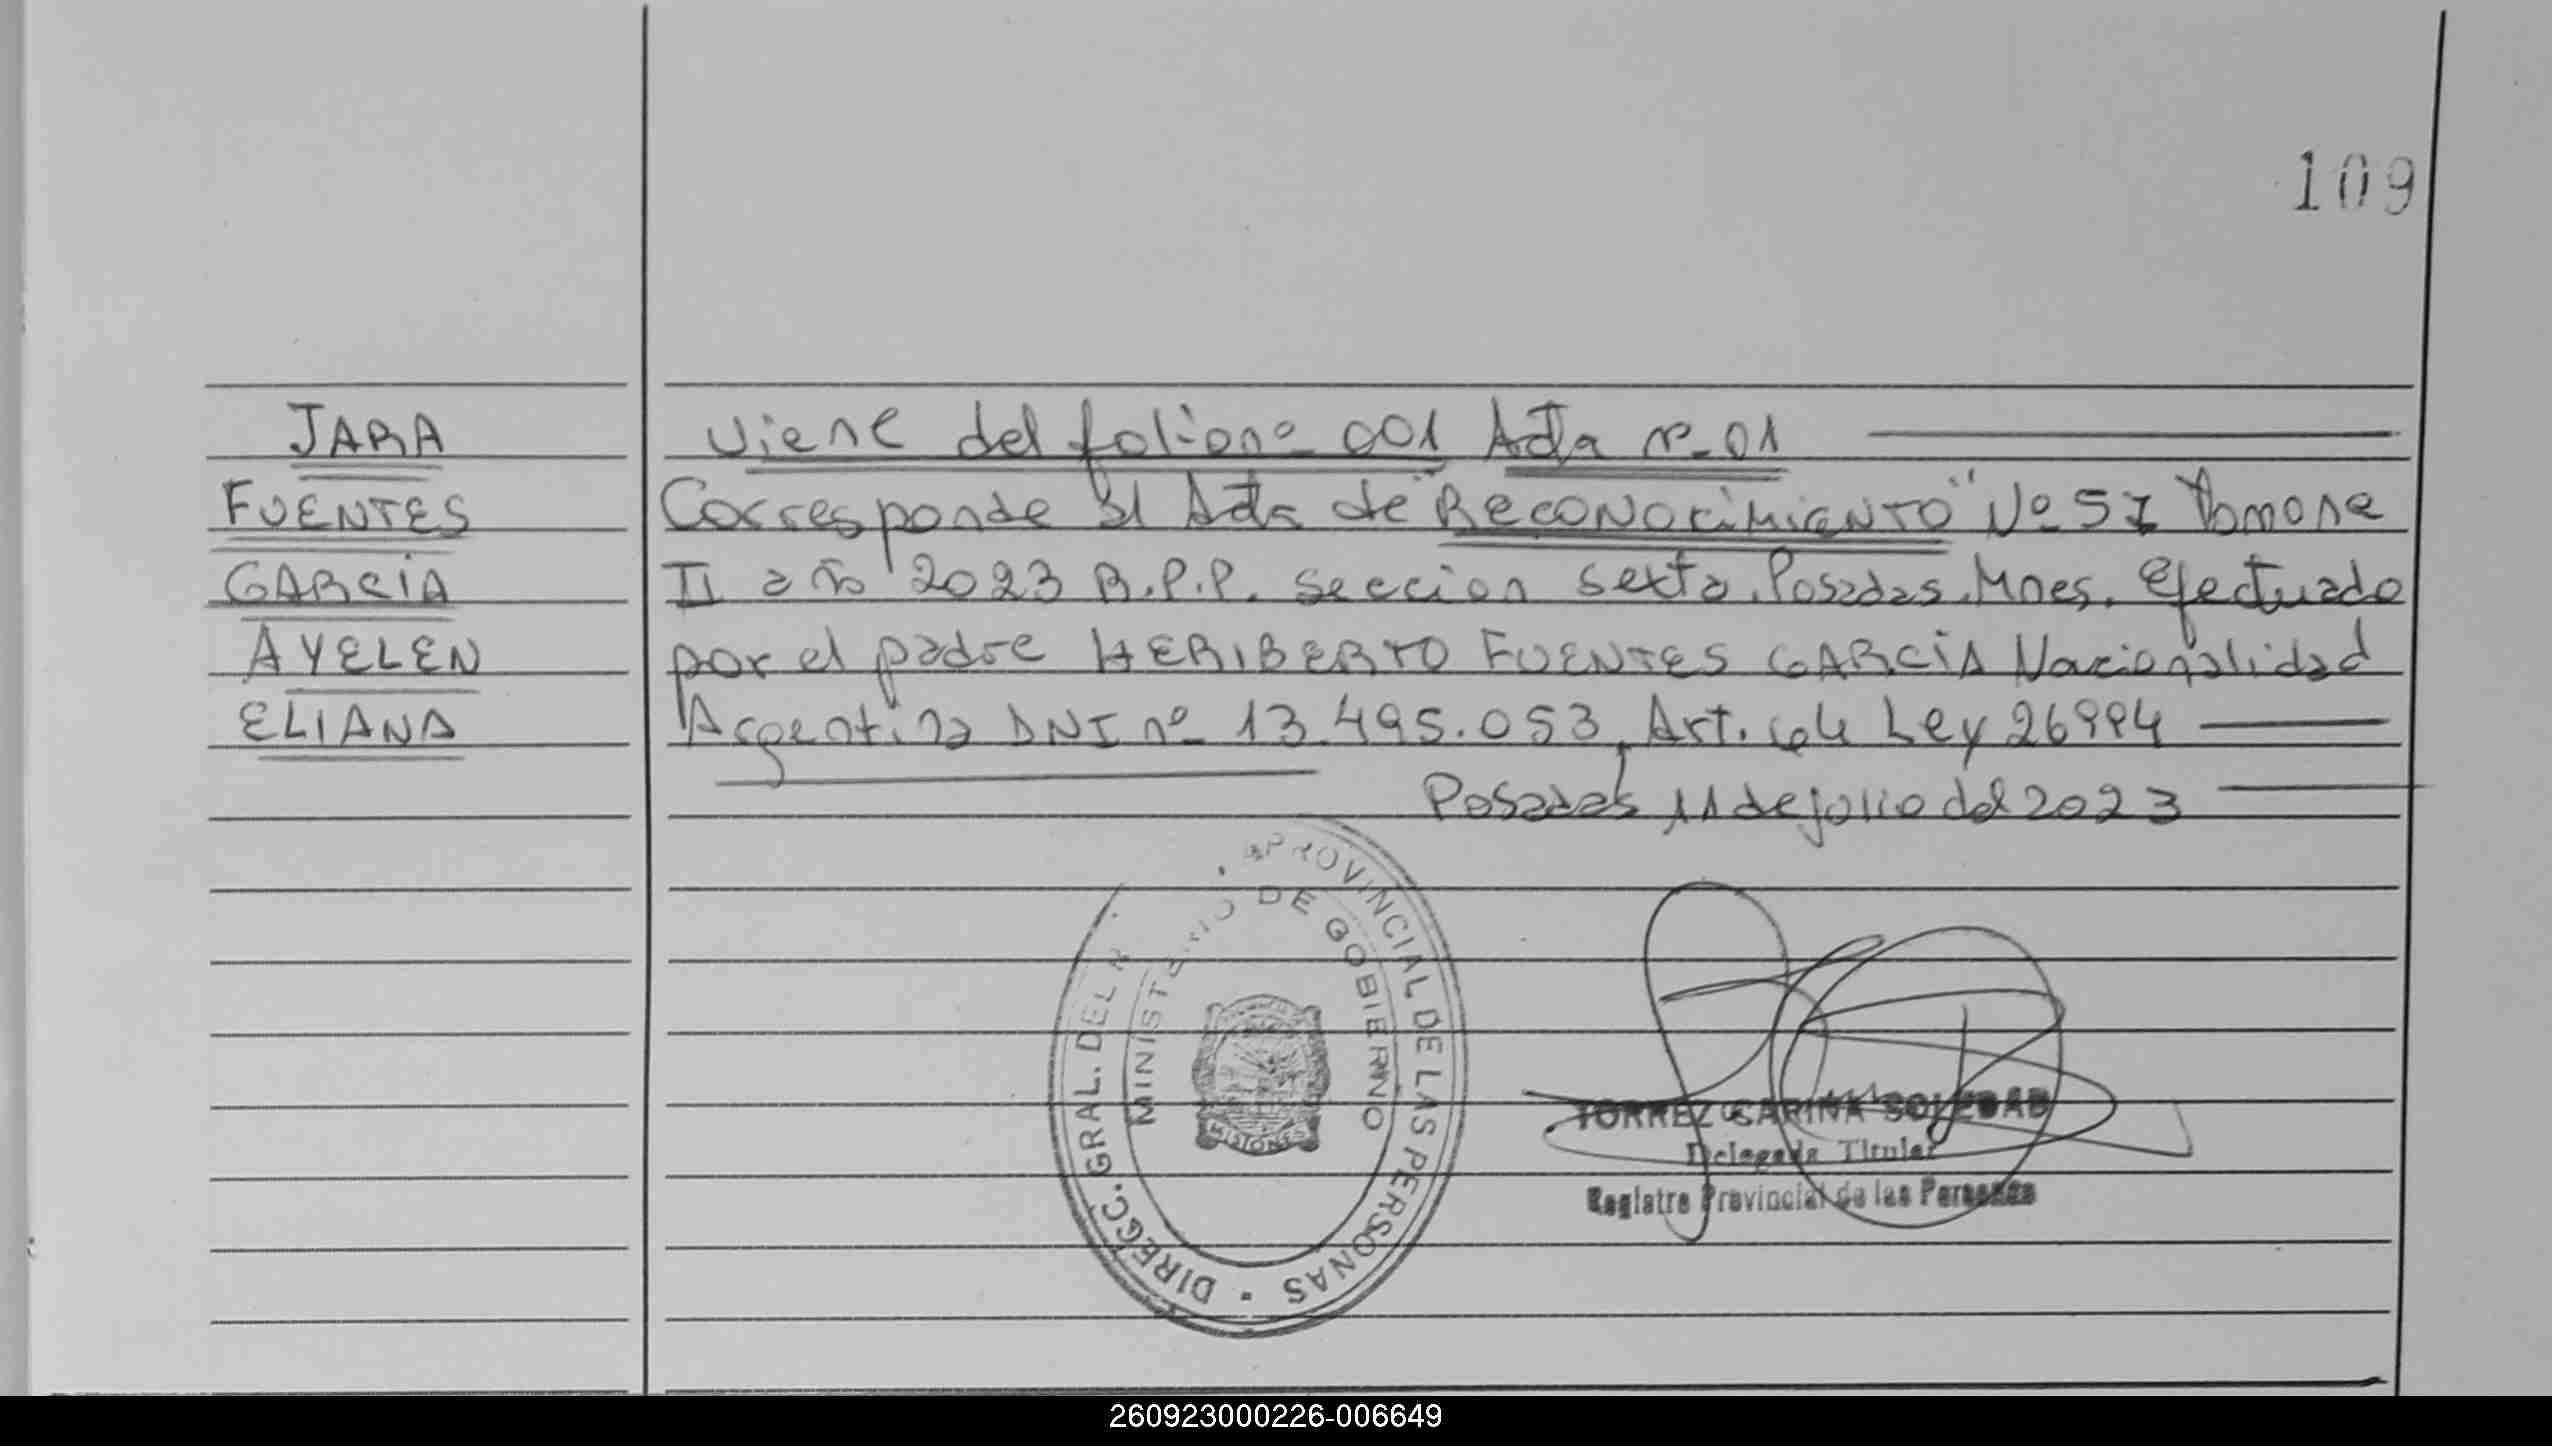 109
JARA
FUENTES
GARCÍA
AYELEN
ELIANA
Viene del folio nº 001 Acta nº 01
Corresponde al Acta de "RECONOCIMIENTO" Nº 57 Tomo ne
II año 2023 R.P.P. seccion sexta. Posadas. Mnes. Efectuado
por el padre HERIBERTO FUENTES GARCÍA Nacionalidad
Argentina DNI nº 13.495.053, Art. 64 Ley 26994
Posadas 11 de julio del 2023
DIRECC. GRAL. DEL R PROVINCIAL DE LAS PERSONAS
MINISTERIO DE GOBIERNO
MISIONES
TORREZ CARINA SOLEDAD
Delegada Titular
Registro Provincial de las Personas
260923000226-006649